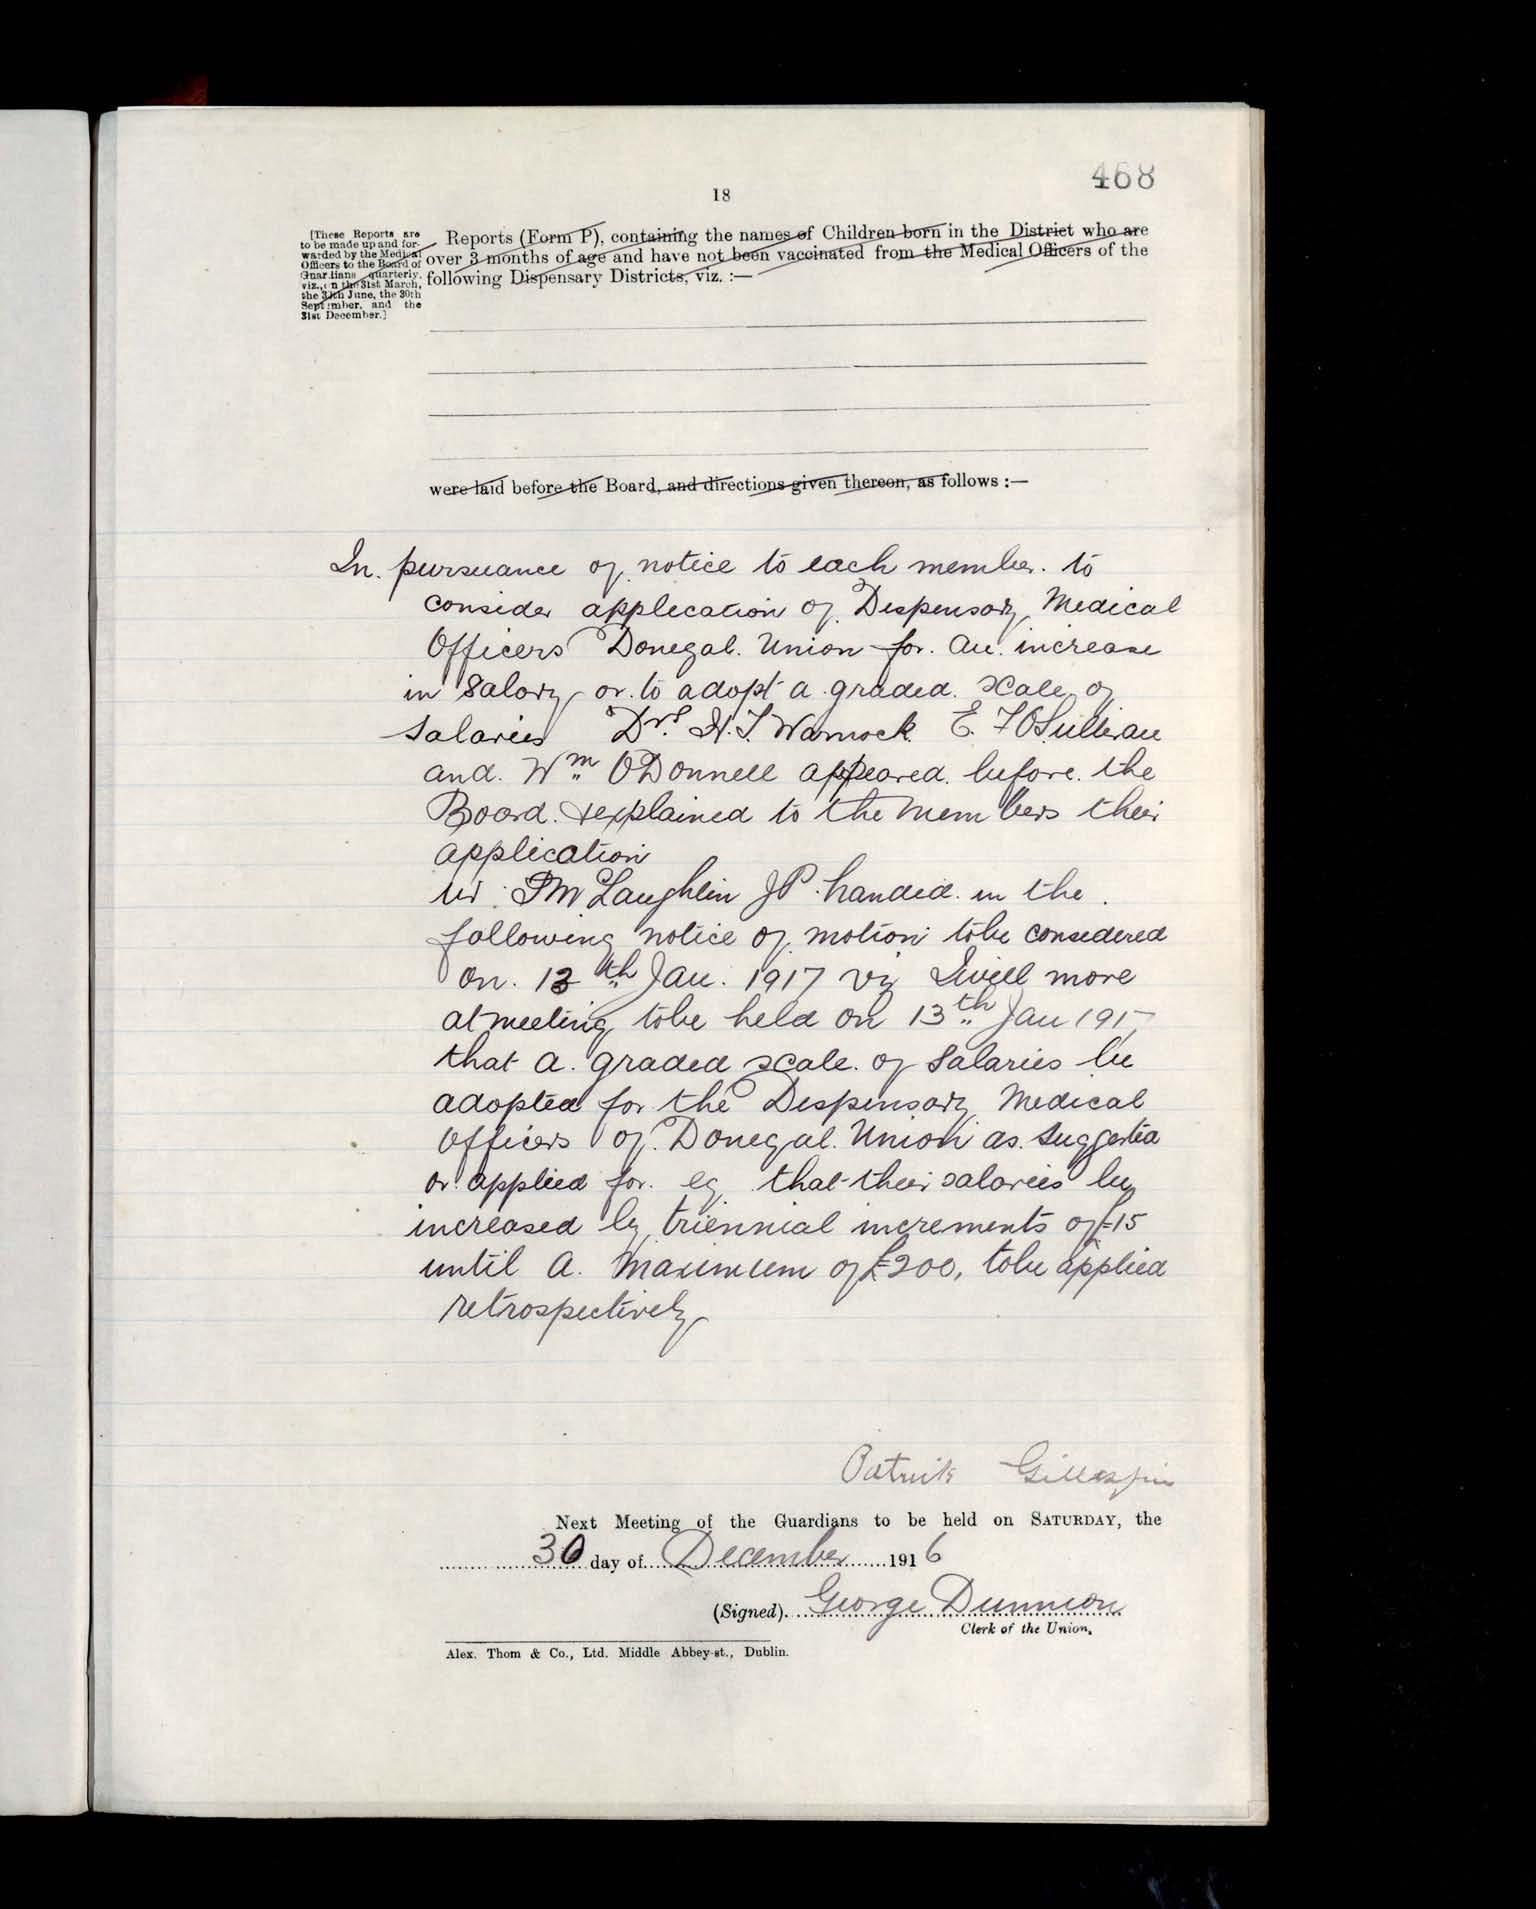 468
18
[These Reports are
to be made up and for-
warded by the Medical
Officers to the Board of
Guardians quarterly,
viz., on the 31st March,
the 30th June, the 30th
September, and the
31st December.]
Reports (Form P), containing the names of Children born in the District who are
over 3 months of age and have not been vaccinated from the Medical Officers of the
following Dispensary Districts, viz. :—
were laid before the Board, and directions given thereon, as follows :—
In pursuance of notice to each member to
consider application of Dispensary Medical
Officers Donegal Union for an increase
in Salary or to adopt a graded scale of
Salaries Drs. H.T. Warnock E. F O'Sullivan
and Wm O'Donnell appeared before the
Board & explained to the Members their
application
Mr McLaughlin JP handed in the
following notice of motion to be considered
on 13th Jan. 1917 viz I will move
at meeting to be held on 13th Jan 1917
that a graded scale of Salaries be
adopted for the Dispensary Medical
Officers of Donegal Union as suggested
or applied for eg that their salaries be
increased by triennial increments of £15
until a maximum of £200, to be applied
retrospectively
Patrick Gillespie
Next Meeting of the Guardians to be held on SATURDAY, the
30 day of December 1916
(Signed) George Dunnion
Clerk of the Union.
Alex. Thom & Co., Ltd. Middle Abbey-st., Dublin.